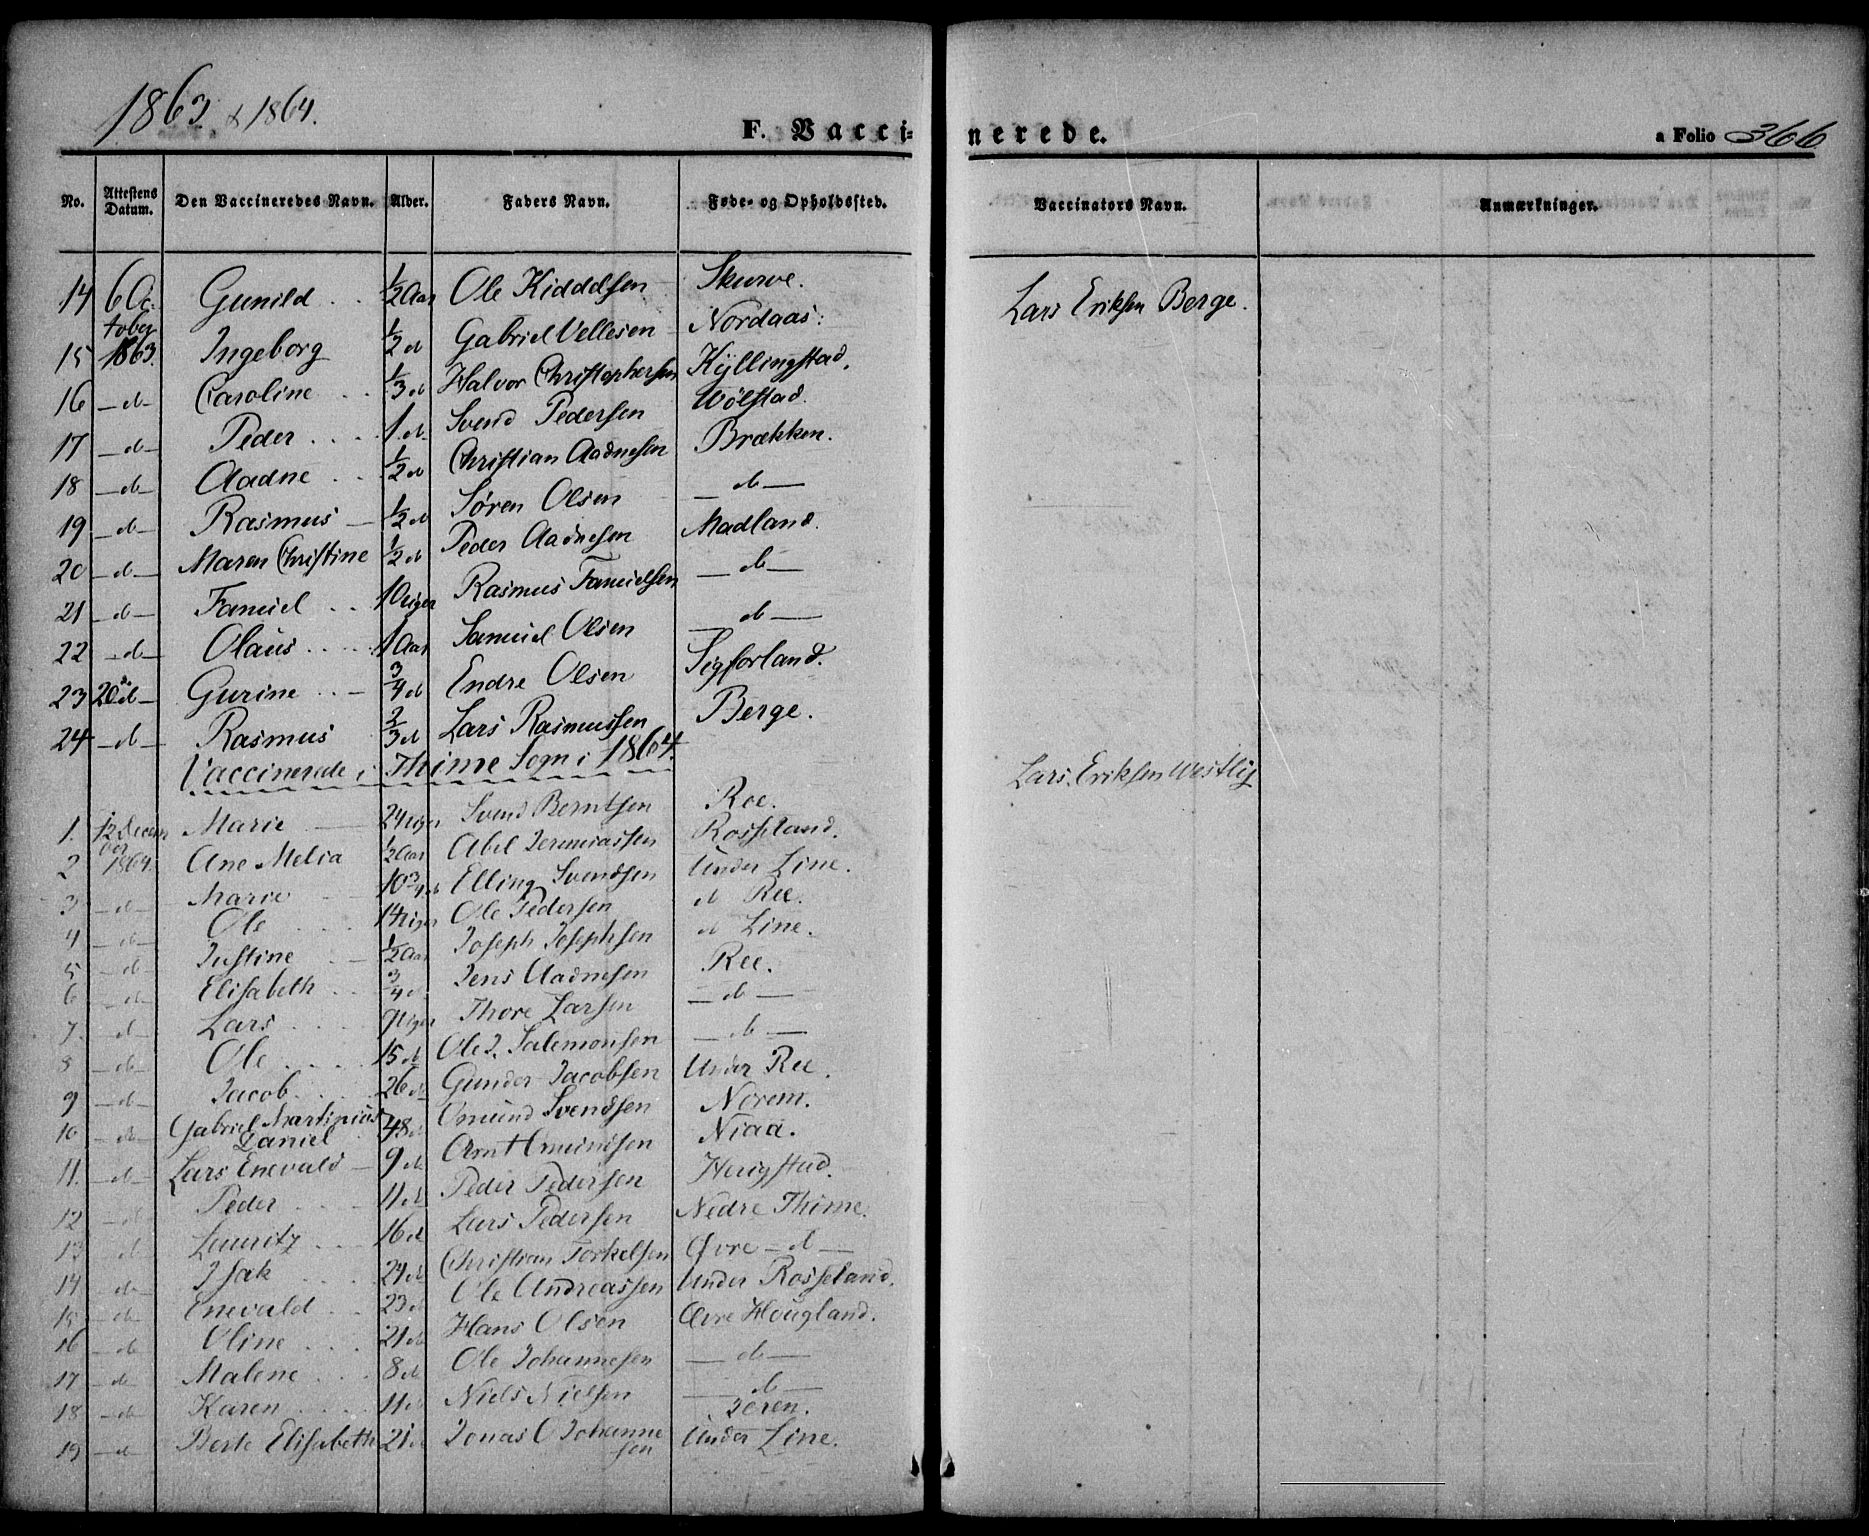 1863 & 1864.
F. Vacci- nerede.
a Folio 366
No. Attestens Datum. Den Vaccineredes Navn. Alder. Faders Navn. Føde- og Opholdssted. Vaccinators Navn. Anmærkninger.
14 6 Oc- Gunild . . 1/2 Aar Ole Kidddsen Skurve. Lars Eriksen Berge.
tober
15 1863. Ingeborg 1/2 d Gabriel Vellesen Nordaas.
16 -d- Caroline . . 1/3 d Halvor Christophersen Kyllingstad.
17 -d- Peder . . . . 1 d Svend Pedersen Wølstad.
18 -d- Aadne . . . 1/2 d Christian Aadnesen Brækken.
19 -d- Rasmus - 1/2 d Søren Olsen -d-
20 -d- Maren Christine 1/2 d Peder Aadnesen Madland.
21 -d- Samuel . . 10 Uger Rasmus Samuelsen -d-
22 -d- Olaus . . . . 1 Aar Samuel Olsen -d-
23 20de d- Gurine . . - 3/4 d Endre Olsen Sigforland.
24 -d- Rasmus 2/3 d Lars Rasmussen Berge.
Vaccinerede i Thime Sogn i 1864. Lars Eriksen Westly
1. 12 Decem Marie - 24 Uger Svend Berntsen Ree.
ber
2 1864. Ane Melia 1/2 Aar Abel Jeremiassen Rosseland.
3 -d- Marie - 10 3/4 d Elling Svendsen Under Line.
4 -d- Ole . . . . 14 Uger Ole Pedersen d Ree.
5 -d- Justine . - 1/2 Aar Joseph Josephsen d Line.
6 -d- Elisabeth . . 3/4 d. Jens Aadnesen Ree.
7. -d- Lars . . . . 9 Uger Thore Larsen -d-
8 -d- Ole . . . . 15 d Ole J. Salemonsen -d-
9 -d- Jacob . . . . 26 d Gunder Jacobsen Under Ree.
10 -d- Gabriel Martinius 48 d Omund Svendsen Norem.
Daniel
11. -d- Lars Enevald - 9 d Arnt Omundsen Niaa.
12 -d- Peder . . . . 11 d Peder Pedersen Houigstad.
13 -d- Lauritz . . . 16 d Lars Pedersen Nedre Thime.
14 -d- Isak . . . . 24 d Christian Torkelsen Øvre -d-
15 -d- Enevald . . 23 d Ole Andreassen Under Rosseland.
16 -d- Oline . . . 21 d Hans Olsen Øvre Hougland.
17 -d- Malene . . . 8 d Ole Johannesen -d-
18 -d- Karen . . . . 11 d Niels Nielsen -d-
Seren.
19 -d Berte Elisabeth 21 d Jonas O Johanne Under Line.
sen